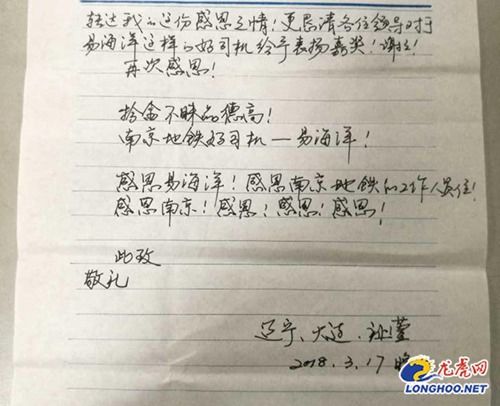 转达我的这份感恩之情!更恳请各位领导对
易海洋这样的好司机给予表扬嘉奖!谢谢!
再次感恩!
拾金不昧品德高!
南京地铁好司机一易海洋!
感恩易海洋!感恩南京地铁的工作人员们!
感恩南京!感恩!感恩!感恩!
此致
敬礼
辽宁、大连.
2018.3.17 晚
龙虎网
LONGHOO.NET